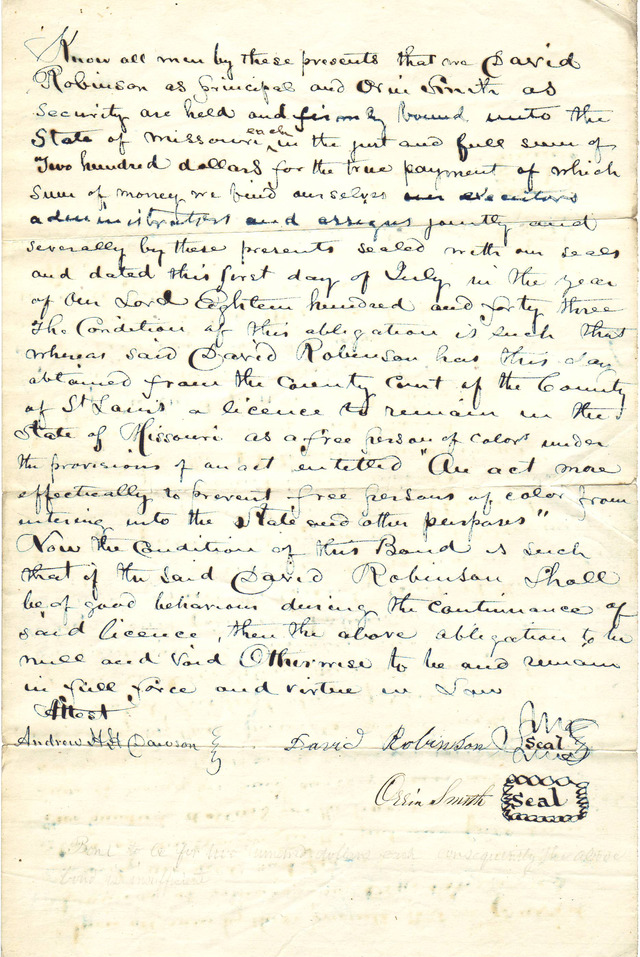 Know all men by these presents that we David
Robinson as principal and Orin Smith as
Security are held and firmly bound unto the
State of Missouri each in the just and full sum of
Two hundred dollars for the true payment of which
sum of money we bind ourselves our executors
administrators and assigns jointly and
severally by these presents sealed with our seals
and dated this first day of July in the year
of our Lord Eighteen hundred and forty three
The Condition of this obligation is such that
whereas said David Robinson has this day
obtained from the County Court of the County
of St Louis a licence to remain in the
State of Missouri as a free person of color under
the provisions of an act entitled "An act more
effectually to prevent free persons of color from
entering into the State and other purposes"
Now the Condition of this Bond is such
that if the said David Robinson Shall
be of good behaviour during the continuance of
said licence, then the above obligation to be
null and void Otherwise to be and remain
in full force and virtue in Law
Attest
Andrew H H Dawson David Robinson Seal
Orrin Smith Seal
Bond